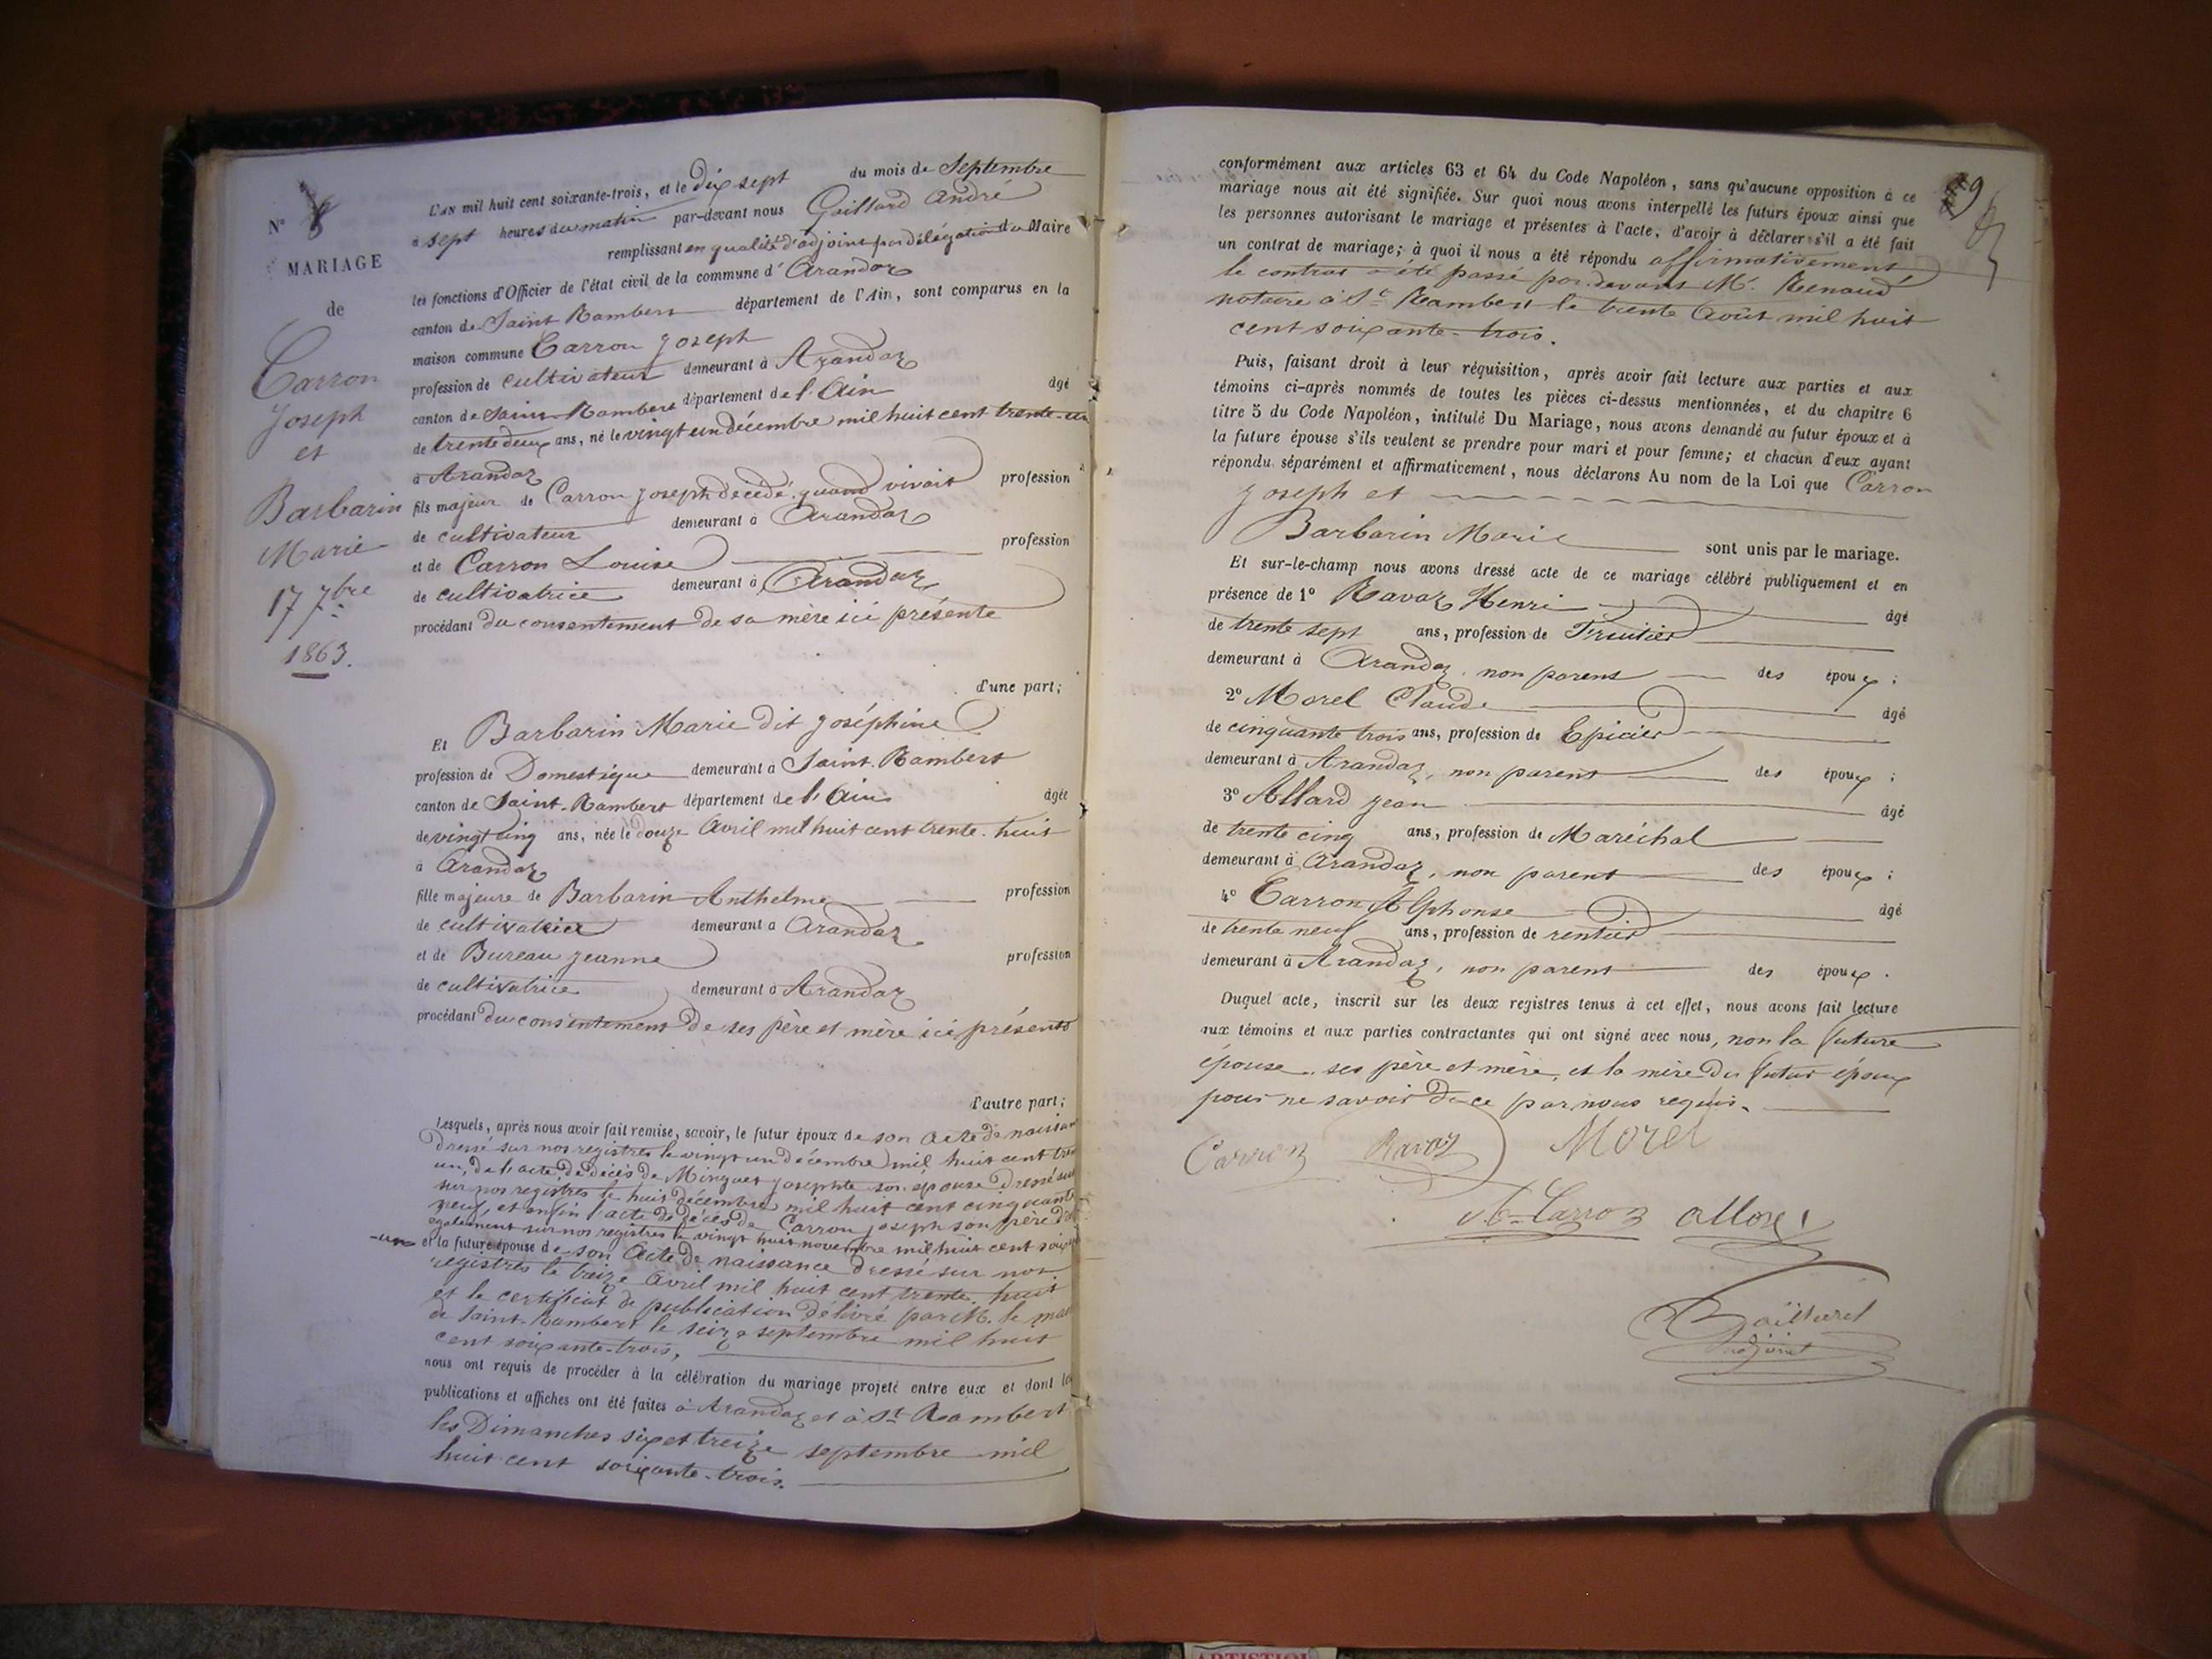 N° 8
MARIAGE
de
Carron
Joseph
et
Barbarin
Marie
17 7bre
1863.
L'AN mil huit cent soixante-trois, et le dix sept du mois de Septembre
à sept heures du matin par-devant nous Gaillard André
remplissant en qualité d'adjoint par délégation du Maire
les fonctions d'Officier de l'état civil de la commune d'Arandaz
canton de Saint Rambert département de l'Ain, sont comparus en la
maison commune Carron Joseph
profession de cultivateur demeurant à Arandaz
canton de Saint-Rambert département de l'Ain âgé
de trente deux ans, né le vingt un décembre mil huit cent trente-un
à Arandaz
fils majeur de Carron Joseph décédé quand vivait profession
de cultivateur demeurant à Arandaz
et de Carron Louise profession
de cultivatrice demeurant à Arandaz
procédant du consentement de sa mère ici présente
d'une part;
Et Barbarin Marie dit Joséphine
profession de Domestique demeurant à Saint-Rambert
canton de Saint-Rambert département de l'Ain âgée
de vingt cinq ans, née le douze Avril mil huit cent trente-huit
à Arandaz
fille majeure de Barbarin Anthelme profession
de cultivateur demeurant à Arandaz
et de Bureau Jeanne profession
de cultivatrice demeurant à Arandaz
procédant du consentement de ses père et mère ici présents
d'autre part;
Lesquels, après nous avoir fait remise, savoir, le futur époux de son acte de naissan
dressé sur nos registres le vingt un décembre mil huit cent tren
un, de l'acte de décès de Minguet Josephte son épouse dressé
sur nos registres le huit décembre mil huit cent cinquante
neuf, et enfin l'acte de décès de Carron Joseph son père
également sur nos registres le vingt huit novembre mil huit cent soix
-un et la future épouse de son acte de naissance dressé sur nos
registres le treize Avril mil huit cent trente-huit
et le certificat de publication délivré par M. le mai
de Saint-Rambert le seize septembre mil huit
cent soixante-trois,
nous ont requis de procéder à la célébration du mariage projeté entre eux et dont les
publications et affiches ont été faites à Arandaz et à St Rambert
les Dimanches six et treize septembre mil
huit cent soixante-trois.
69
conformément aux articles 63 et 64 du Code Napoléon, sans qu'aucune opposition à ce
mariage nous ait été signifiée. Sur quoi nous avons interpellé les futurs époux ainsi que
les personnes autorisant le mariage et présentes à l'acte, d'avoir à déclarer s'il a été fait
un contrat de mariage; à quoi il nous a été répondu affirmativement,
le contrat a été passé par devant M. Renaud
notaire à St Rambert le trente Août mil huit
cent soixante-trois.
Puis, faisant droit à leur réquisition, après avoir fait lecture aux parties et aux
témoins ci-après nommés de toutes les pièces ci-dessus mentionnées, et du chapitre 6
titre 5 du Code Napoléon, intitulé Du Mariage, nous avons demandé au futur époux et à
la future épouse s'ils veulent se prendre pour mari et pour femme; et chacun d'eux ayant
répondu séparément et affirmativement, nous déclarons Au nom de la Loi que Carron
Joseph et
Barbarin Marie sont unis par le mariage.
Et sur-le-champ nous avons dressé acte de ce mariage célébré publiquement et en
présence de 1° Ravaz Henri âgé
de trente sept ans, profession de Fruitier
demeurant à Arandaz, non parent des époux;
2° Morel Claude âgé
de cinquante trois ans, profession de Epicier
demeurant à Arandaz, non parent des époux;
3° Allard Jean âgé
de trente cinq ans, profession de Maréchal
demeurant à Arandaz, non parent des époux;
4° Carron Alphonse âgé
de trente neuf ans, profession de rentier
demeurant à Arandaz, non parent des époux.
Duquel acte, inscrit sur les deux registres tenus à cet effet, nous avons fait lecture
aux témoins et aux parties contractantes qui ont signé avec nous, non la future
épouse, ses père et mère, et la mère du futur époux
pour ne savoir de ce par nous requis.
Carron Ravaz Morel
Carron
Gaillard
adjoint
ARTISTIQU